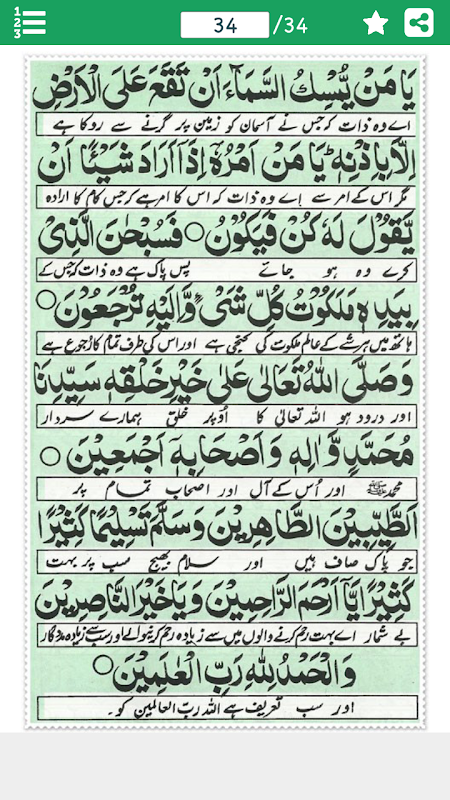 1 2 3
34 /34
يَا مَنْ يُّمْسِكُ السَّمَآءَ اَنْ تَقَعَ عَلَى الْاَرْضِ
اے وہ ذات کہ جس نے آسمان کو زمین پر گرنے سے روکا ہے
اِلَّا بِاِذْنِهٖ يَا مَنْ اَمْرُهٗ اِذَا اَرَادَ شَيْئًا اَنْ
مگر اس کے امر سے اے وہ ذات کہ اس کا امر ہے کہ جس کام کا ارادہ
يَّقُوْلَ لَهٗ كُنْ فَيَكُوْنُ ○ فَسُبْحٰنَ الَّذِيْ
کرے وہ ہو جائے پس پاک ہے وہ ذات کہ جس کے
بِيَدِهٖ مَلَكُوْتُ كُلِّ شَيْءٍ وَّاِلَيْهِ تُرْجَعُوْنَ ○
ہاتھ میں ہر شے کے عالم ملکوت کی کنجی ہے اور اس کی طرف تمام کا رجوع ہے
وَصَلَّى اللّٰهُ تَعَالٰى عَلٰى خَيْرِ خَلْقِهٖ سَيِّدِنَا
اور درود ہو اللہ تعالیٰ کا اوپر خلق ہمارے سردار
مُحَمَّدٍ وَّاٰلِهٖ وَاَصْحَابِهٖ اَجْمَعِيْنَ ○
محمد ﷺ اور اُس کے آل اور اصحاب تمام پر
الطَّيِّبِيْنَ الطَّاهِرِيْنَ وَسَلَّمَ تَسْلِيْمًا كَثِيْرًا
جو پاک صاف ہیں اور سلام بھیج سب پر بہت
كَثِيْرًا يَّآ اَرْحَمَ الرَّاحِمِيْنَ وَيَا خَيْرَ النَّاصِرِيْنَ
بے شمار اے بہت رحم کرنے والوں میں سے زیادہ رحم کرنیوالے اور سب سے زیادہ مددگار
وَالْحَمْدُ لِلّٰهِ رَبِّ الْعٰلَمِيْنَ ○
اور سب تعریف ہے اللہ رب العالمین کو۔